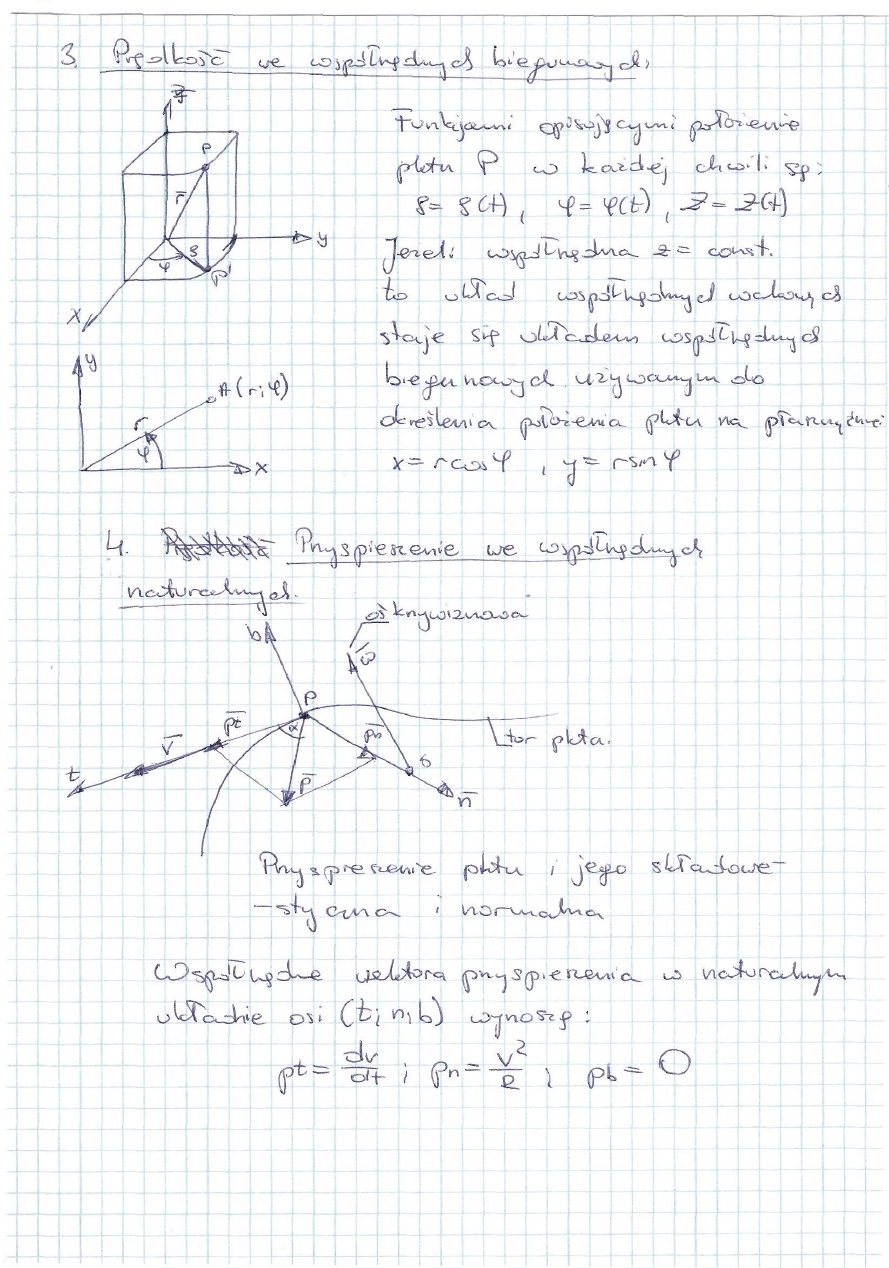 3. Prędkość we współrzędnych biegunowych,
z
P
r̄
y
φ
ϱ
P'
x
Funkcjami opisującymi położenie
pktu P w każdej chwili są:
ϱ = ϱ(t), φ = φ(t), z = z(t)
Jeżeli współrzędna z = const.
to układ współrzędnych walcowych
staje się układem współrzędnych
biegunowych używanym do
określenia położenia pktu na płaszczyźnie
x = r cos φ , y = r sin φ
y
A(r; φ)
r
φ
x
4. Przyspieszenie we współrzędnych
naturalnych.
oś krzywiznowa
b
ω̄
P
p̄t
α
p̄n
V̄
tor pkta.
t
p̄
n̄
Przyspieszenie pktu i jego składowe-
-styczna i normalna
Współrzędne wektora przyspieszenia w naturalnym
układzie osi (t; n; b) wynoszą:
pt = dv/dt ; pn = v²/R ; pb = 0